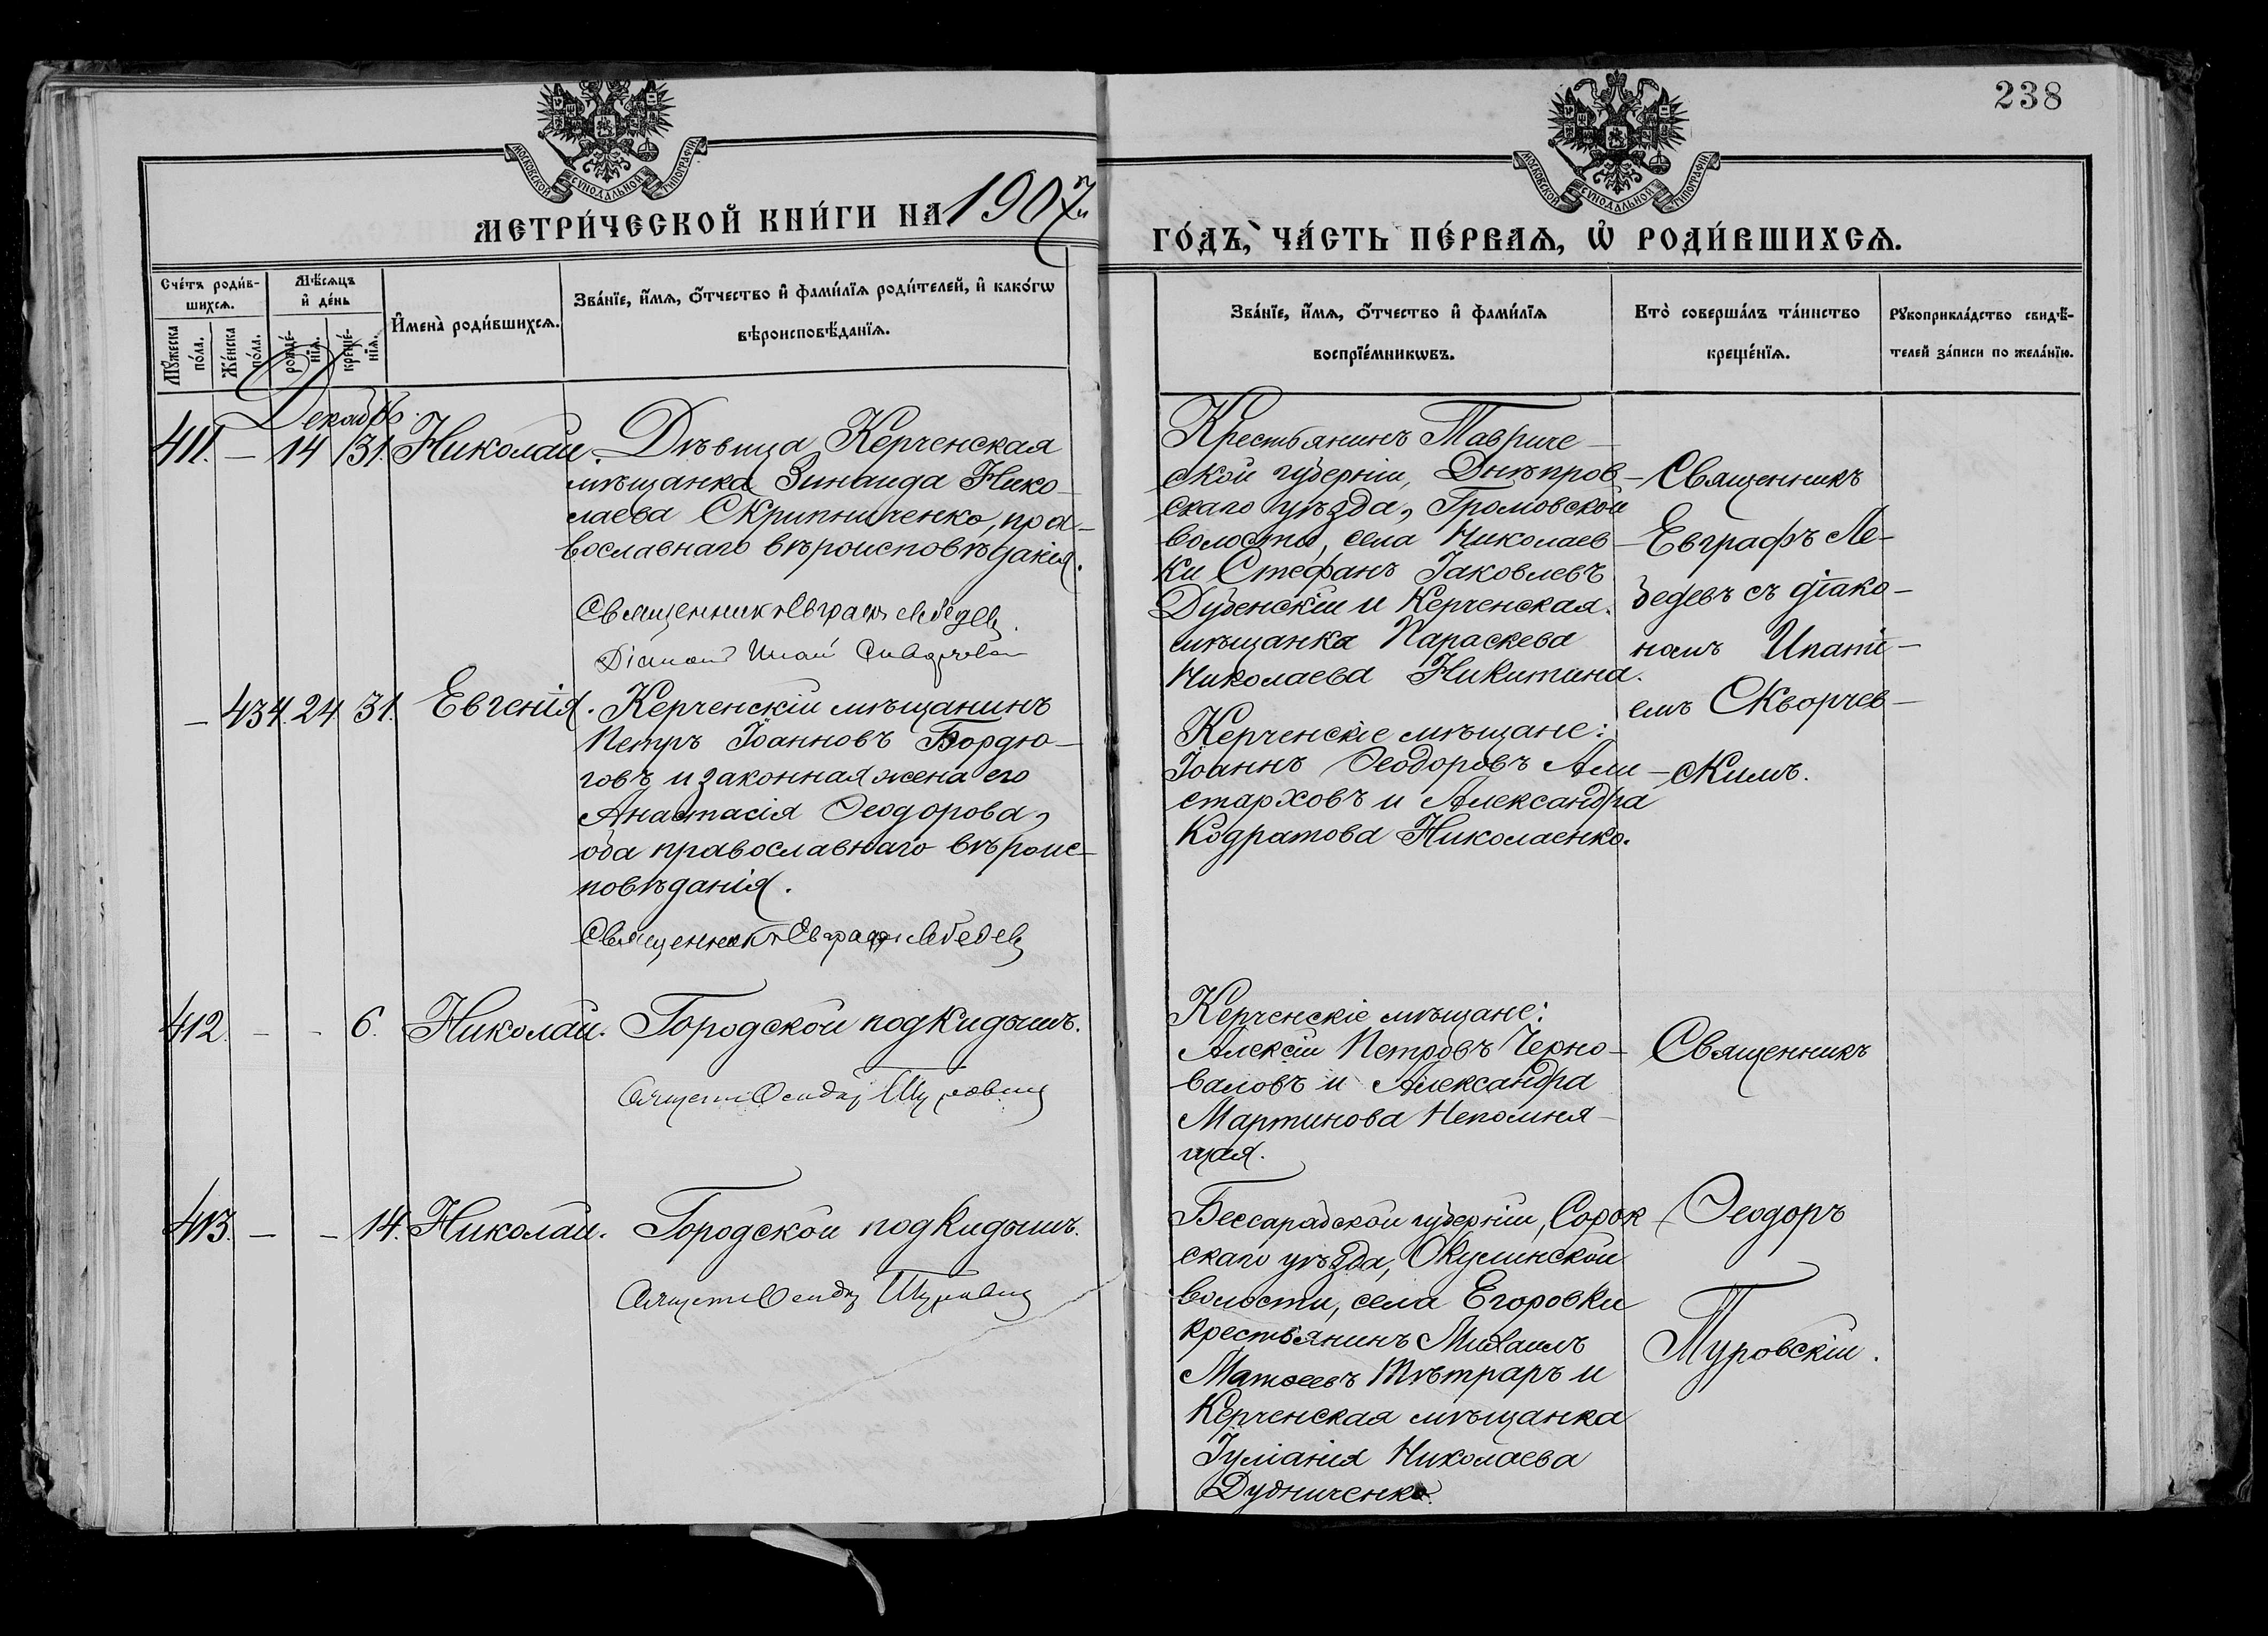 238
МОСКОВСКОЙ СѴНОДАЛЬНОЙ ТИПОГРАФІИ
МОСКОВСКОЙ СѴНОДАЛЬНОЙ ТИПОГРАФІИ
МЕТРИ́ЧЕСКОЙ КНИ́ГИ НА 1907й
ГО́ДЪ, ЧА́СТЬ ПЕ́РВАѦ, Ѡ҆ РОДИ́ВШИХСѦ.
Сче́тъ роди́в-
шихсѧ.
Мꙋжеска по́ла.
Же́нска по́ла.
Мѣ́сѧцъ
и҆ де́нь
рожде́-
нїѧ.
креще́-
нїѧ.
И҆мена̀ роди́вшихсѧ.
Зва́нїе, и҆́мѧ, ѻ҆́тчество и҆ фами́лїѧ роди́телей, и҆ како́гѡ
вѣроисповѣ́данїѧ.
Зва́нїе, и҆́мѧ, ѻ҆́тчество и҆ фами́лїѧ
воспрїе́мникѡвъ.
Кто̀ соверша́лъ та́инство
креще́нїѧ.
Рꙋкоприкла́дство свидѣ́-
телей за́писи по жела́нїю.
Декабрь.
411. — 14 31. Николай. Дѣвица Керченская
мѣщанка Зинаида Нико-
лаева Скрипниченко, пра-
вославнаго вѣроисповѣданія.
Священникъ Евграфъ Лебедев
Діаконъ
Крестьянинъ Тавриче-
ской губерніи, Днѣпров-
скаго уѣзда, Громовской
волости, села Николаев-
ки Стефанъ Іаковлевъ
Дубенскій и Керченская
мѣщанка Параскева
Николаева Никитина.
Священникъ
Евграфъ Ле-
бедевъ съ діако-
номъ Ипаті-
емъ Скворчев-
скимъ.
— 434. 24 31. Евгенія. Керченскій мѣщанинъ
Петръ Іоанновъ Бордю-
говъ и законная жена его
Анастасія Ѳеодорова,
оба православнаго вѣроис-
повѣданія.
Священникъ Евграфъ Лебедев
Керченскіе мѣщане:
Іоаннъ Ѳеодоровъ Али-
старховъ и Александра
Кодратова Николаенко.
412. — — 6. Николай. Городской подкидышъ.
Керченскіе мѣщане:
Алексій Петровъ Черно-
валовъ и Александра
Мартинова Непомня-
щая.
Священникъ
413. — — 14. Николай. Городской подкидышъ.
Бессарабской губерніи, Сорок
скаго уѣзда, Окулинской
волости, села Егоровки
крестьянинъ Михаилъ
Матѳеевъ Тѣтраръ и
Керченская мѣщанка
Іуліанія Николаева
Дудниченко.
Ѳеодоръ
Туровскій.